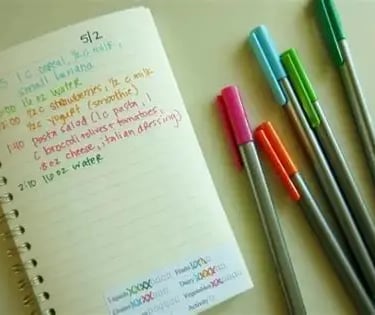 5/2
5 1 c cereal, ½ c milk,
small banana
:50 16 oz water
:00 ½ c strawberries, ½ c milk
½ c yogurt (smoothie)
1:40 pasta salad (1 c pasta, 1
c broccoli, olives, tomatoes,
oz cheese, italian dressing)
2:10 16 oz water
Liquids Fruits
Dairy
Grains Vegetables
Activity